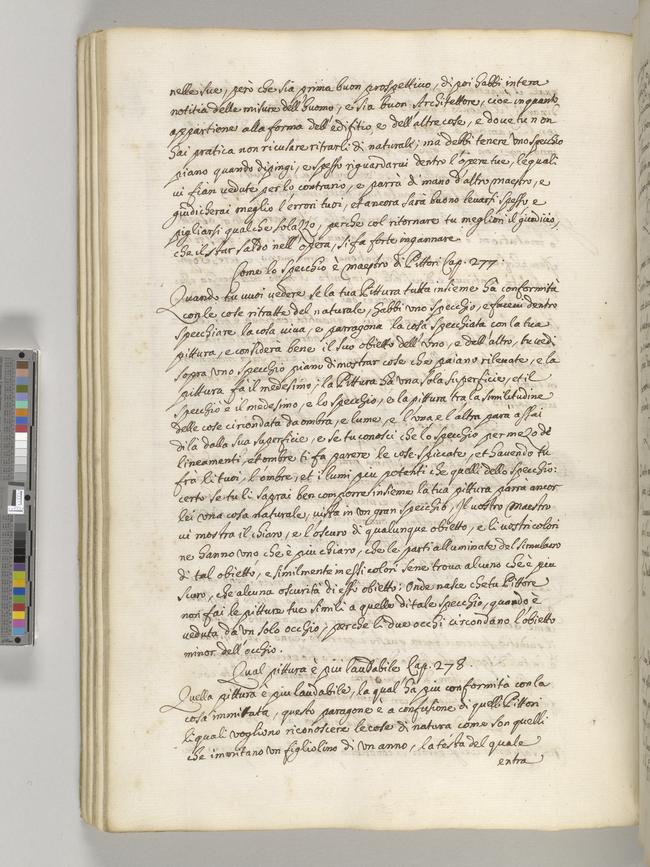 nelle sue, però che sia prima buon prospettivo, di poi habbi intera
notitia delle misure dell'huomo, e sia buon Architettore, cioè in quanto
appartiene alla forma dell'edifitio e dell'altre cose, e dove tu non
hai pratica non ricusare ritrarli di naturale; ma debbi tenere uno specchio
piano quando dipingi, e spesso riguardarvi dentro l'opere tue, le quali
vi fian vedute per lo contrario, e parrà di mano d'altro maestro, e
giudicherai meglio l'errori tuoi, et ancora sarà buono levarsi spesso e
pigliarsi qualche solazzo, perche col ritornare tu megliori il giuditio,
che il star saldo nell'opera, si fa forte ingannare
Come lo specchio è maestro di Pittori Cap. 277.
Quando tu vuoi vedere se la tua Pittura tutta insieme ha conformità
con le cose ritratte del naturale, habbi uno specchio, e facevi dentro
specchiare la cosa viva, e parragona la cosa specchiata con la tua
pittura, e considera bene il suo obietto dell'uno, e dell'altro, tu vedi
sopra uno specchio piano dimostrar cose che paiano rilevate, e la
pittura fà il medesimo; la Pittura hà una sola superficie, et il
specchio è il medesimo, e lo specchio, e la pittura tra la similitudine
delle cose circondata da ombra, e lume, e l'una e l'altra parà assai
di là dalla sua superficie, e se tu conosci che lo specchio per mezo de
lineamenti, et ombre ti fa parere le cose spiccate, et havendo tu
fra li tuoi, l'ombre, et i lumi piu potenti che quelli dello specchio:
certo se tu li saprai ben comporre insieme la tua pittura parrà ancor
lei una cosa naturale, vista in un gran specchio, Il vostro Maestro
vi mostra il chiaro, e l'oscuro di qualunque obietto, e li vostri colori
ne hanno uno che è piu chiaro, che le parti alluminate del simulacro
di tal obietto, e similmente in essi colori se ne trova alcuno che è piu
scuro, che alcuna oscurità di esso obietto: Onde nasce che tu Pittore
non fai le pitture tue simili a quello di tale specchio, quando è
veduta da un solo occhio, perche li due occhi circondano l'obietto
minor dell'occhio.
Qual pittura è piu laudabile Cap. 278.
Quella pittura è piu laudabile, la qual hà piu conformità con la
cosa immittata, questo paragone è a confusione di quelli Pittori
li quali vogliono riconoscere le cose di natura come son quelli
che imitano un figliolino di un anno, la testa del quale
entra